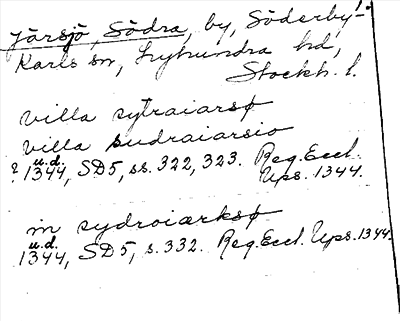 Järsjö, Södra, by, Söderby-
Karls sn, Lyhundra hd,
Stockh. l.
villa sytraiarsø
villa sudraiarsio
? u.d. 1344, SD5, ss. 322, 323. Reg. Eccl.
Ups. 1344.
in sydroiærksø
u.d. 1344, SD5, s. 332. Reg. Eccl. Ups. 1344.